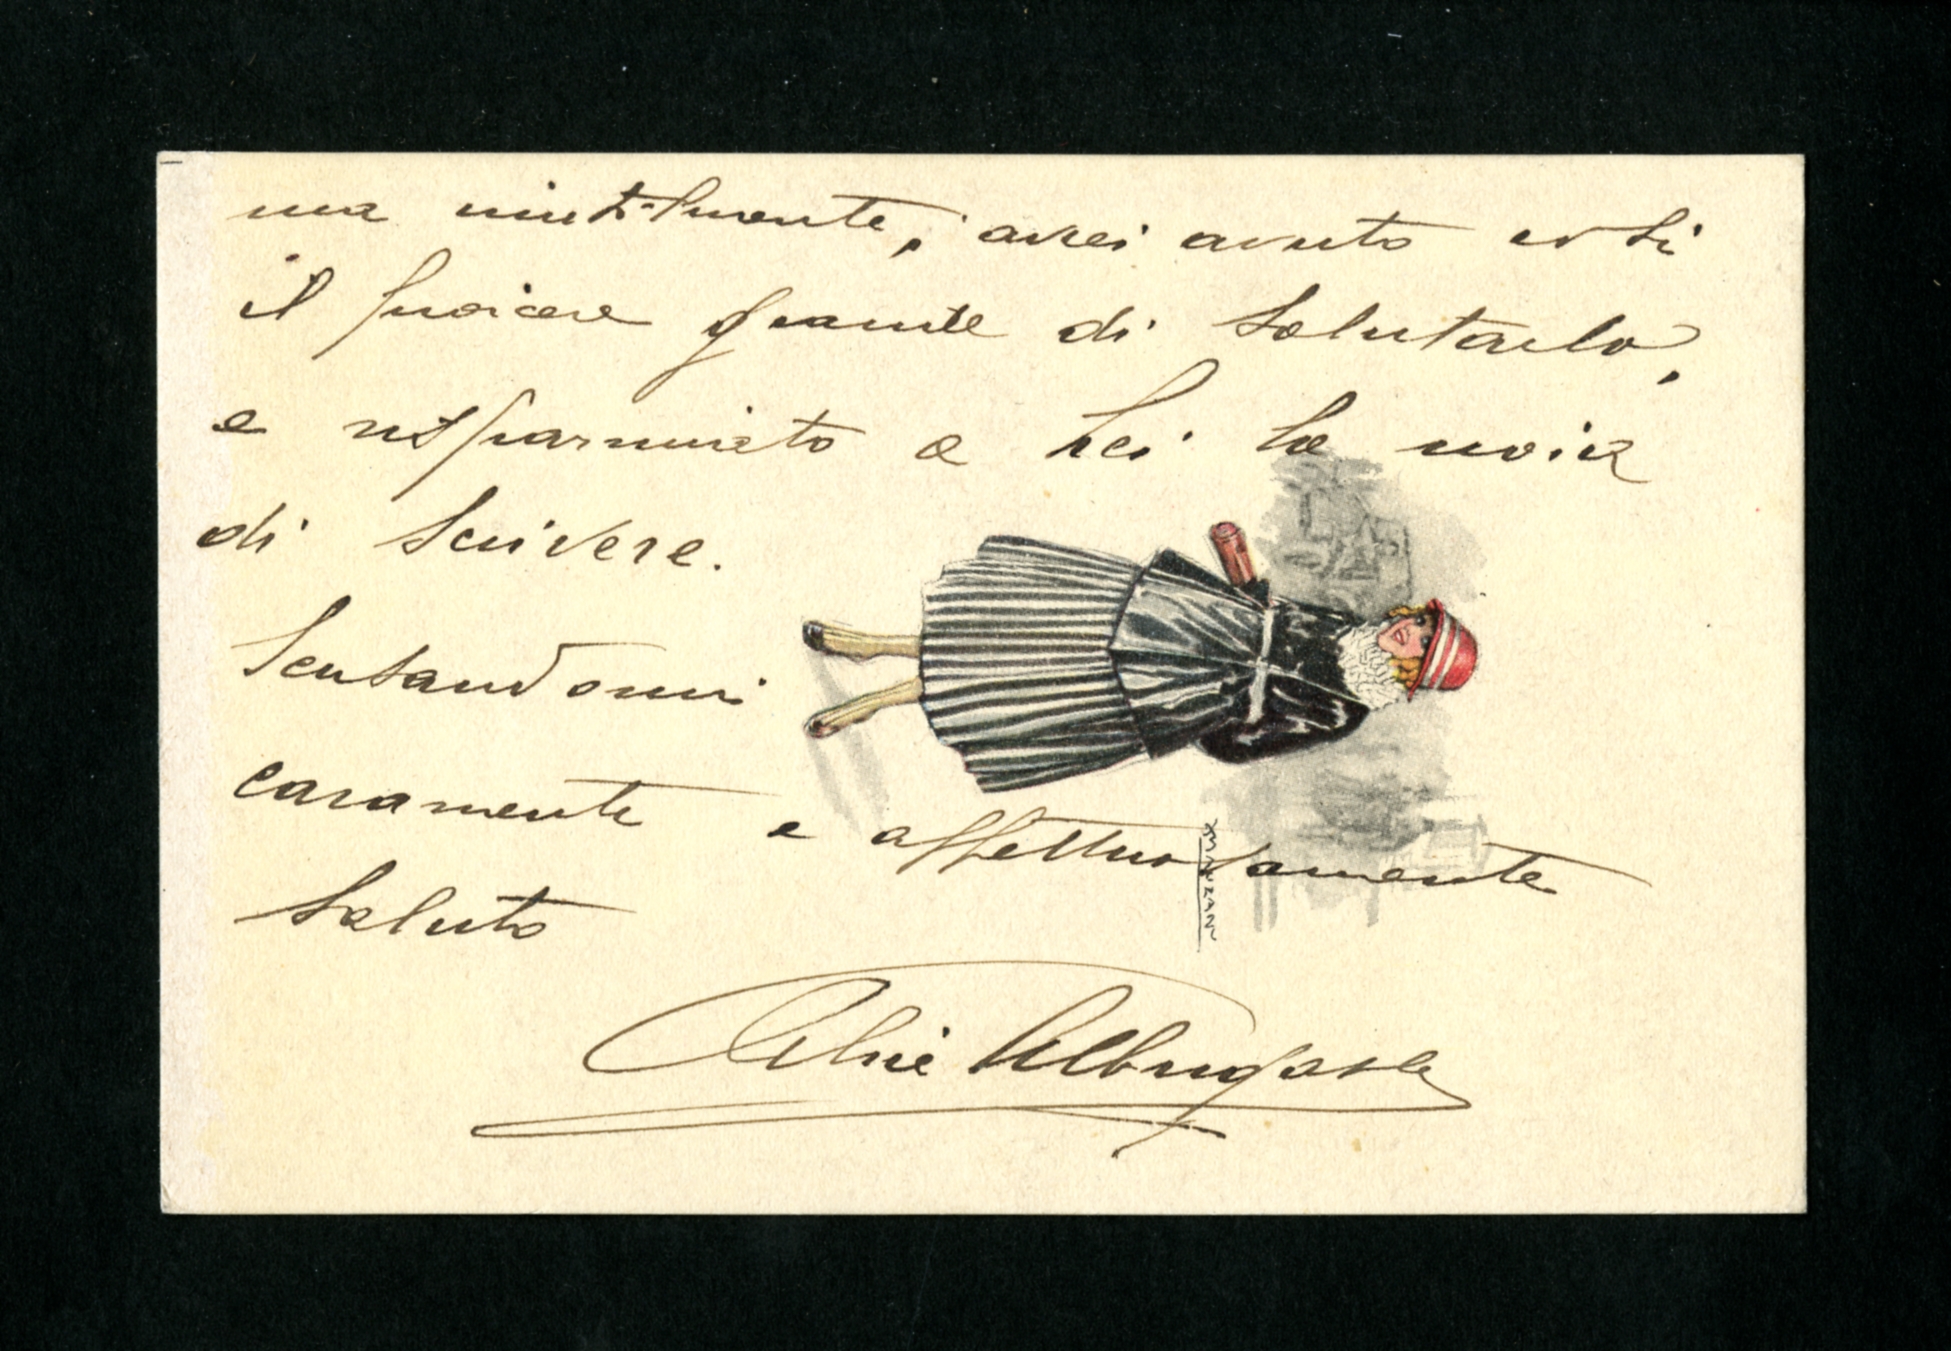 ma inutilmente, avrei avuto così
il piacere grande di salutarlo,
e risparmiato a Lei la noia
di scrivere.
Scusandomi
caramente e affettuosamente
saluto
MAUZAN